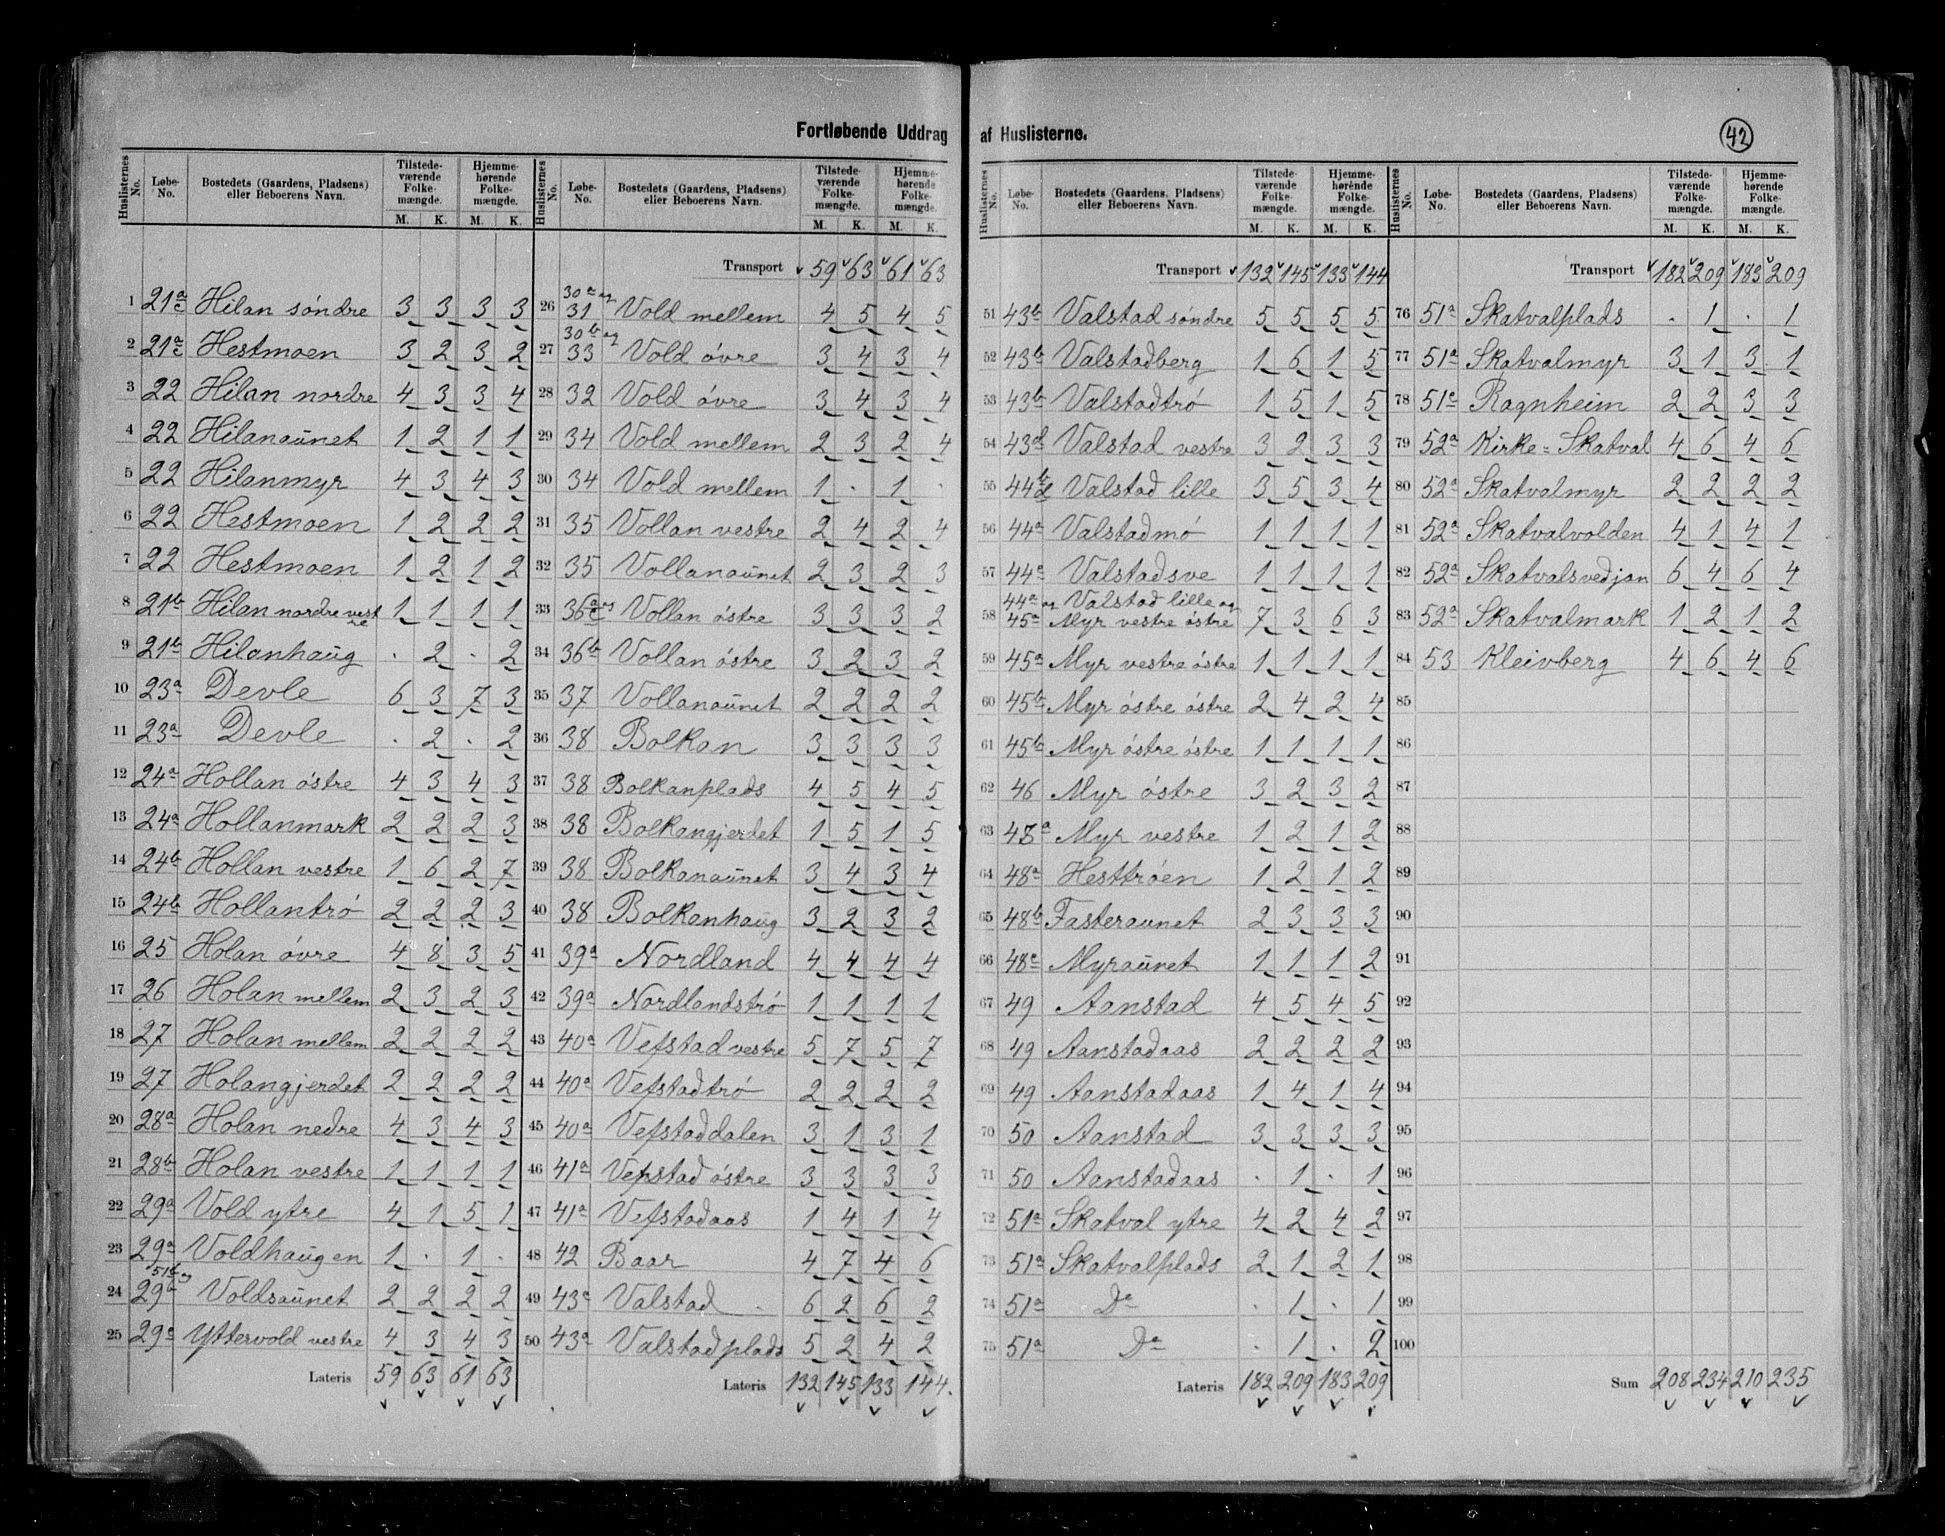 Fortløbende Uddrag af Huslisterne.
42
Huslisternes No. Løbe-No. Bostedets (Gaardens, Pladsens) eller Beboerens Navn. Tilstedeværende Folkemængde. M. K. Hjemmehørende Folkemængde. M. K.
1 21a c Hilan søndre 3 3 3 3
2 21a c Hestmoen 3 2 3 2
3 22 Hilan nordre 4 3 3 4
4 22 Hilanaunet 1 2 1 1
5 22 Hilanmyr 4 3 4 3
6 22 Hestmoen 1 2 2 2
7 22 Hestmoen 1 2 1 2
8 21b Hilan nordre vestre 1 1 1 1
9 21b Hilanhaug . 2 . 2
10 23a Devle 6 3 7 3
11 23a Devle . 2 . 2
12 24a Hollan østre 4 3 4 3
13 24a Hollanmark 2 2 2 3
14 24b Hollan vestre 1 6 2 7
15 24b Hollantrø 2 2 2 3
16 25 Holan øvre 4 8 3 5
17 26 Holan mellem 2 3 2 3
18 27 Holan mellem 2 2 2 2
19 27 Holangjerdet 2 2 2 2
20 28a Holan nedre 4 3 4 3
21 28b Holan vestre 1 1 1 1
22 29a Vold ytre 4 1 5 1
23 29a Voldhaugen 1 . 1 .
24 51b og 29b Voldsaunet 2 2 2 2
25 29a Yttervold vestre 4 3 4 3
Lateris 59 63 61 63
Huslisternes No. Løbe-No. Bostedets (Gaardens, Pladsens) eller Beboerens Navn. Tilstedeværende Folkemængde. M. K. Hjemmehørende Folkemængde. M. K.
Transport 59 63 61 63
26 30a og 31 Vold mellem 4 5 4 5
27 30b og 33 Vold øvre 3 4 3 4
28 32 Vold øvre 3 4 3 4
29 34 Vold mellem 2 3 2 4
30 34 Vold mellem 1 . 1 .
31 35 Vollan vestre 2 4 2 4
32 35 Vollanaunet 2 3 2 3
33 36a og c Vollan østre 3 3 3 2
34 36b Vollan østre 3 2 3 2
35 37 Vollanaunet 2 2 2 2
36 38 Bolkan 3 3 3 3
37 38 Bolkanplads 4 5 4 5
38 38 Bolkangjerdet 1 5 1 5
39 38 Bolkanaunet 3 4 3 4
40 38 Bolkanhaug 3 2 3 2
41 39a Nordland 4 4 4 4
42 39a Nordlandstrø 1 1 1 1
43 40a Vefstad vestre 5 7 5 7
44 40a Vefstadtrø 2 2 2 2
45 40a Vefstaddalen 3 1 3 1
46 41a Vefstad østre 3 3 3 3
47 41a Vefstadaas 1 4 1 4
48 42 Baar 4 7 4 6
49 43a Valstad 6 2 6 2
50 43a Valstadplads 5 2 4 2
Lateris 132 145 133 144.
Huslisternes No. Løbe-No. Bostedets (Gaardens, Pladsens) eller Beboerens Navn. Tilstedeværende Folkemængde. M. K. Hjemmehørende Folkemængde. M. K.
Transport 132 145 133 144
51 43b Valstad søndre 5 5 5 5
52 43b Valstadberg 1 6 1 5
53 43b Valstadtrø 1 5 1 5
54 43d Valstad vestre 3 2 3 3
55 44b d Valstad lille 3 5 3 4
56 44a Valstadmo 1 1 1 1
57 44a Valstadsve 1 1 1 1
58 44a og 45a Valstad lille og Myr vestre østre 7 3 6 3
59 45a Myr vestre østre 1 1 1 1
60 45b Myr østre østre 2 4 2 4
61 45b Myr østre østre 1 1 1 1
62 46 Myr østre 3 2 3 2
63 48a Myr vestre 1 2 1 2
64 48a Hesttrøen 1 2 1 2
65 48b Fasteraunet 2 3 3 3
66 48a Myraunet 1 1 1 2
67 49 Aanstad 4 5 4 5
68 49 Aanstadaas 2 2 2 2
69 49 Aanstadaas 1 4 1 4
70 50 Aanstad 3 3 3 3
71 50 Aanstadaas . 1 . 1
72 51a Skatval ytre 4 2 4 2
73 51a Skatvalplads 2 1 2 1
74 51a Do . 1 . 1
75 51a Do . 1 . 2
Lateris 182 209 183 209
Huslisternes No. Løbe-No. Bostedets (Gaardens, Pladsens) eller Beboerens Navn. Tilstedeværende Folkemængde. M. K. Hjemmehørende Folkemængde. M. K.
Transport 182 209 183 209
76 51a Skatvalplads . 1 . 1
77 51a Skatvalmyr 3 1 3 1
78 51c Ragnheim 2 2 3 3
79 52a Kirke=Skatval 4 6 4 6
80 52a Skatvalmyr 2 2 2 2
81 52a Skatvalvolden 4 1 4 1
82 52a Skatvalsvedjan 6 4 6 4
83 52a Skatvalmark 1 2 1 2
84 53 Kleivberg 4 6 4 6
85
86
87
88
89
90
91
92
93
94
95
96
97
98
99
100
Sum 208 234 210 235